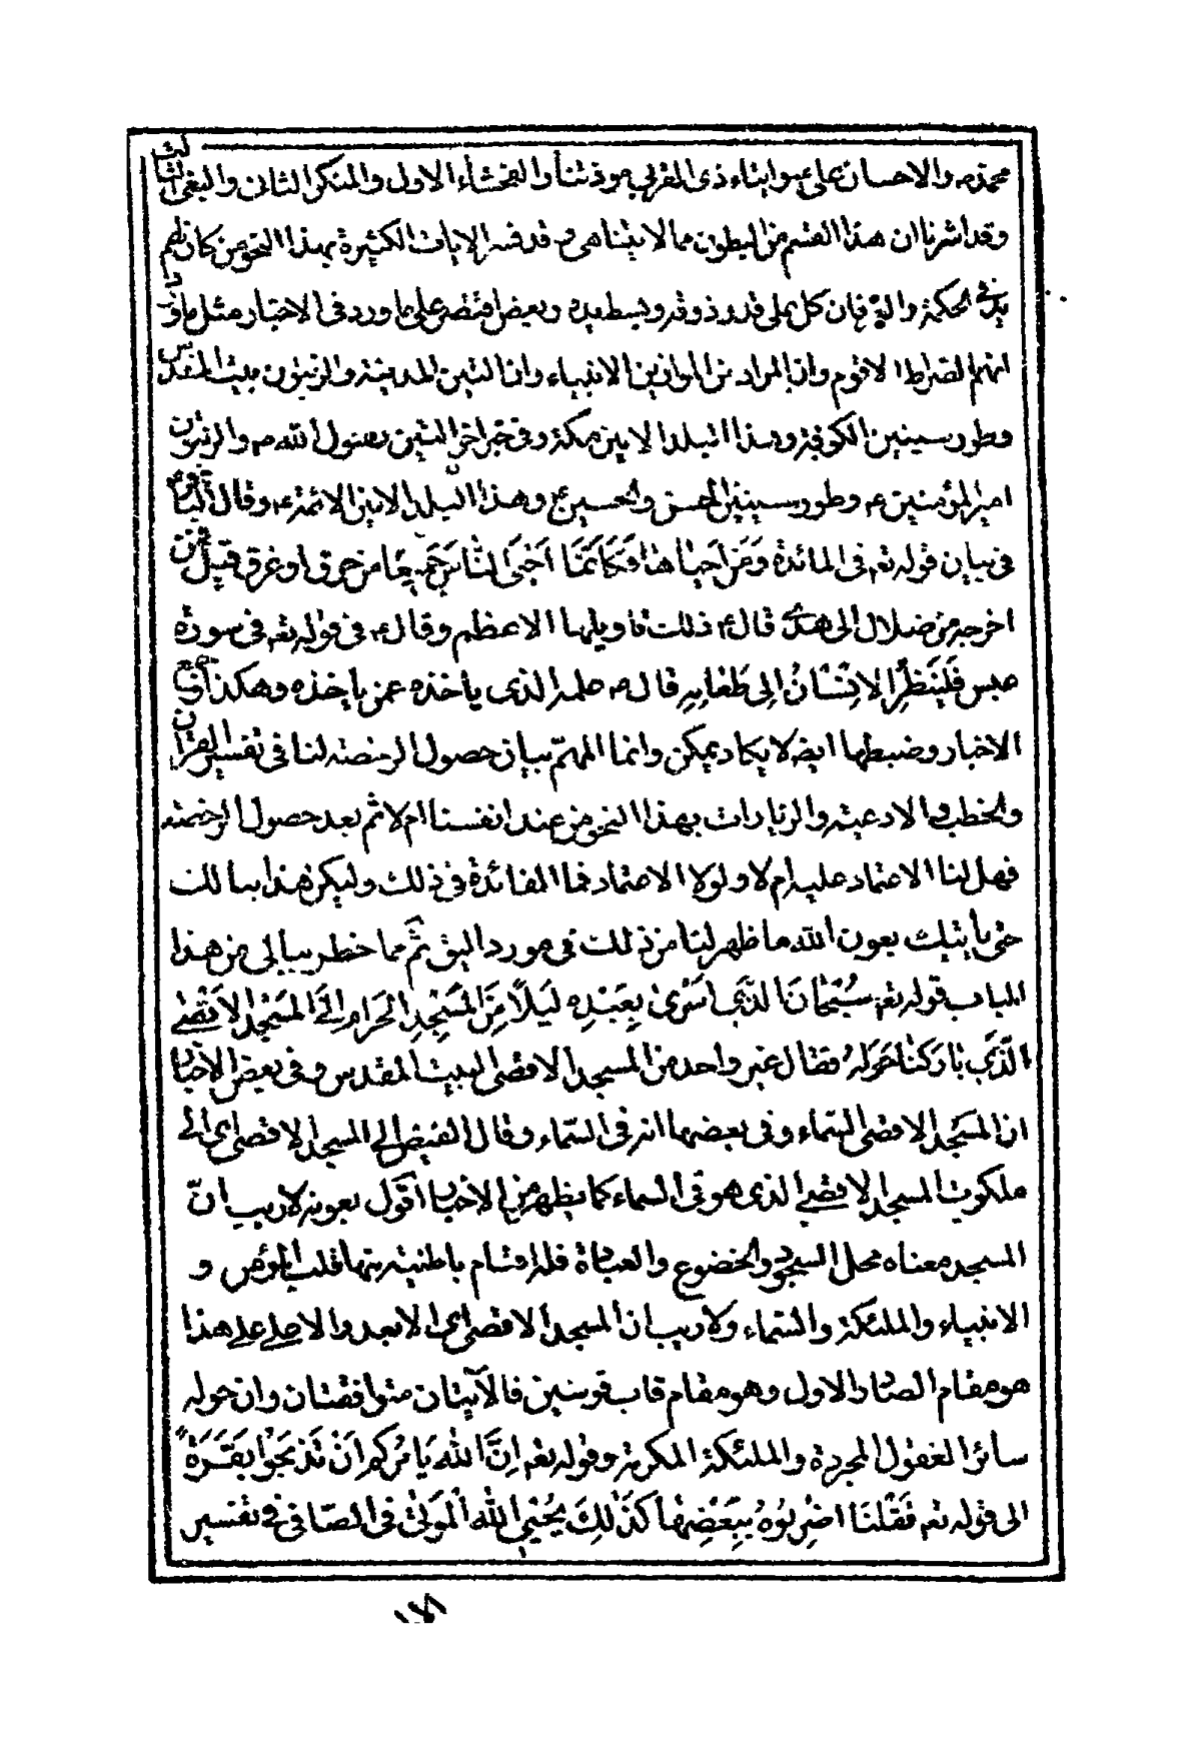 محمد ص والاحسان علي ع وايتاء ذى القربى مودتنا والفحشاء الاول والمنكر الثانى والبغى الثالث
وقد اشرنا ان هذا القسم من البطون مما لا يتناهى و قد فسر الايات الكثيرة بهذا النحو من كان لهم
يد فى الحكمة فان كل على قدر ذوقه وبسط يده وبعض اقتصر على ما ورد فى الاخبار مثل ما ورد
انهم الصراط الاقوم وان المراد من الموازين الانبياء وان التين المدينة والزيتون بيت المقدس
وطور سينين الكوفة وهذا البلد الامين مكة وفى خبر اخر التين رسول الله ص والزيتون
امير المؤمنين ع وطور سينين الحسن والحسين ع وهذا البلد الامين الائمة ع وقال الباقر ع
فى بيان قوله تعـ فى المائدة وَمَن اَحياها فَكَاَنَّمَا اَحْيَى النّاسَ جَميعًا من حرق او غرق قيل فمن
اخرجه من ضلال الى هدى قال ع ذلك تاويلها الاعظم وقال ع فى قوله تعـ فى سورة
عبس فَليَنظُرِ الاِنْسَانُ اِلى طَعامِهِ قال ص علمه الذى ياخذه عمن ياخذه وهكذا
الاخبار وضبطها ايضـ لا يكاد يمكن وانما المهمّ بيان حصول الرخصة لنا فى تفسير القرآن
والخطب والادعية والزيارات بهذا النحو من عند انفسنا ام لا ثم بعد حصول الرخصة
فهل لنا الاعتماد عليه ام لا ولولا الاعتماد فما الفائدة فى ذلك وليكن هذا ببالك
حتى ياتيك بعون الله ما ظهر لنا من ذلك فى مورد اليق ثمّ مما خطر ببالى من هذا
الباب قوله تعـ سُبْحانَ الَّذى اَسْرىٰ بِعَبْدِهِ لَيلًا مِنَ المَسْجِدِ الحَرامِ اِلَى المَسْجِدِ الاَقْصٰى
الَّذى بارَكْنا حَولَهُ فقال غير واحد من المسجد الاقصى البيت المقدس وفى بعض الاخبار
ان المسجد الاقصى السّماء وفى بعضها انه فى السّماء وقال الفيض الى المسجد الاقصى اى الى
ملكوت المسجد الاقصى الذى هو فى السماء كما يظهر من الاخبار اقول بعونه لا ريب انّ
المسجد معناه محل السجود والخضوع والعبادة فله اقسام باطنية منها قلب المؤمن و
الانبياء والملئكة والسّماء ولا ريب ان المسجد الاقصى اى الابعد والاعلى على هذا
هو مقام الصادر الاول وهو مقام قاب قوسين فالآيتان متوافقتان وان حوله
سائر العقول المجردة والملئكة المكرمة وقوله تعـ اِنَّ اللهَ يَامُرُكُم اَنْ تَذبَحُوا بَقَرَةً
الى قوله تعـ فَقُلنَا اضْرِبُوهُ بِبَعْضِها كَذلِكَ يُحْيِى اللهُ الْمَوتٰى فى الصّافى فى تفسير
الا